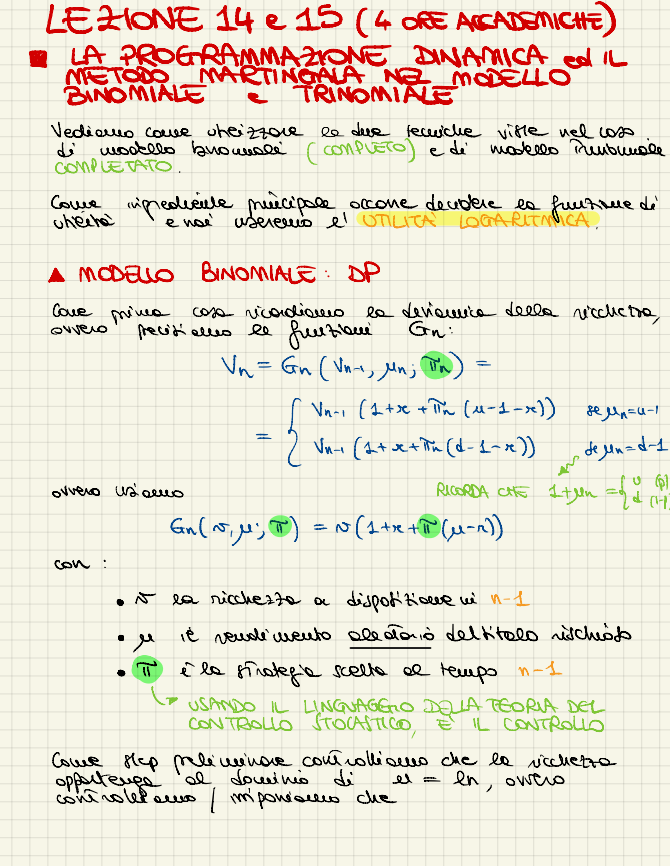 LEZIONE 14 e 15 (4 ORE ACCADEMICHE)
LA PROGRAMMAZIONE DINAMICA ed IL
METODO MARTINGALA NEL MODELLO
BINOMIALE e TRINOMIALE
Vediamo come utilizzare le due tecniche viste nel caso
di modello binomiale (COMPLETO) e di modello trinomiale
COMPLETATO.
Come ingrediente principale occorre decidere la funzione di
utilità e noi useremo l' UTILITÀ LOGARITMICA.
▲ MODELLO BINOMIALE: DP
Come prima cosa ricordiamo la dinamica della ricchezza,
ovvero precisiamo le funzioni Gn:
Vn = Gn (Vn-1, μn; πn) =
= { Vn-1 (1+r+πn (u-1-r)) se μn=u-1
Vn-1 (1+r+πn (d-1-r)) se μn=d-1
ovvero usiamo RICORDA CHE 1+μn = { u (p) d (1-p)
Gn(v, μ; π) = v(1+r+π(μ-r))
con:
• v la ricchezza a disposizione in n-1
• μ il rendimento aleatorio del titolo rischioso
• π è la strategia scelta al tempo n-1
↳ USANDO IL LINGUAGGIO DELLA TEORIA DEL
CONTROLLO STOCASTICO, È IL CONTROLLO
Come step preliminare controlliamo che la ricchezza
appartenga al dominio di u = ln, ovvero
controlliamo / imponiamo che